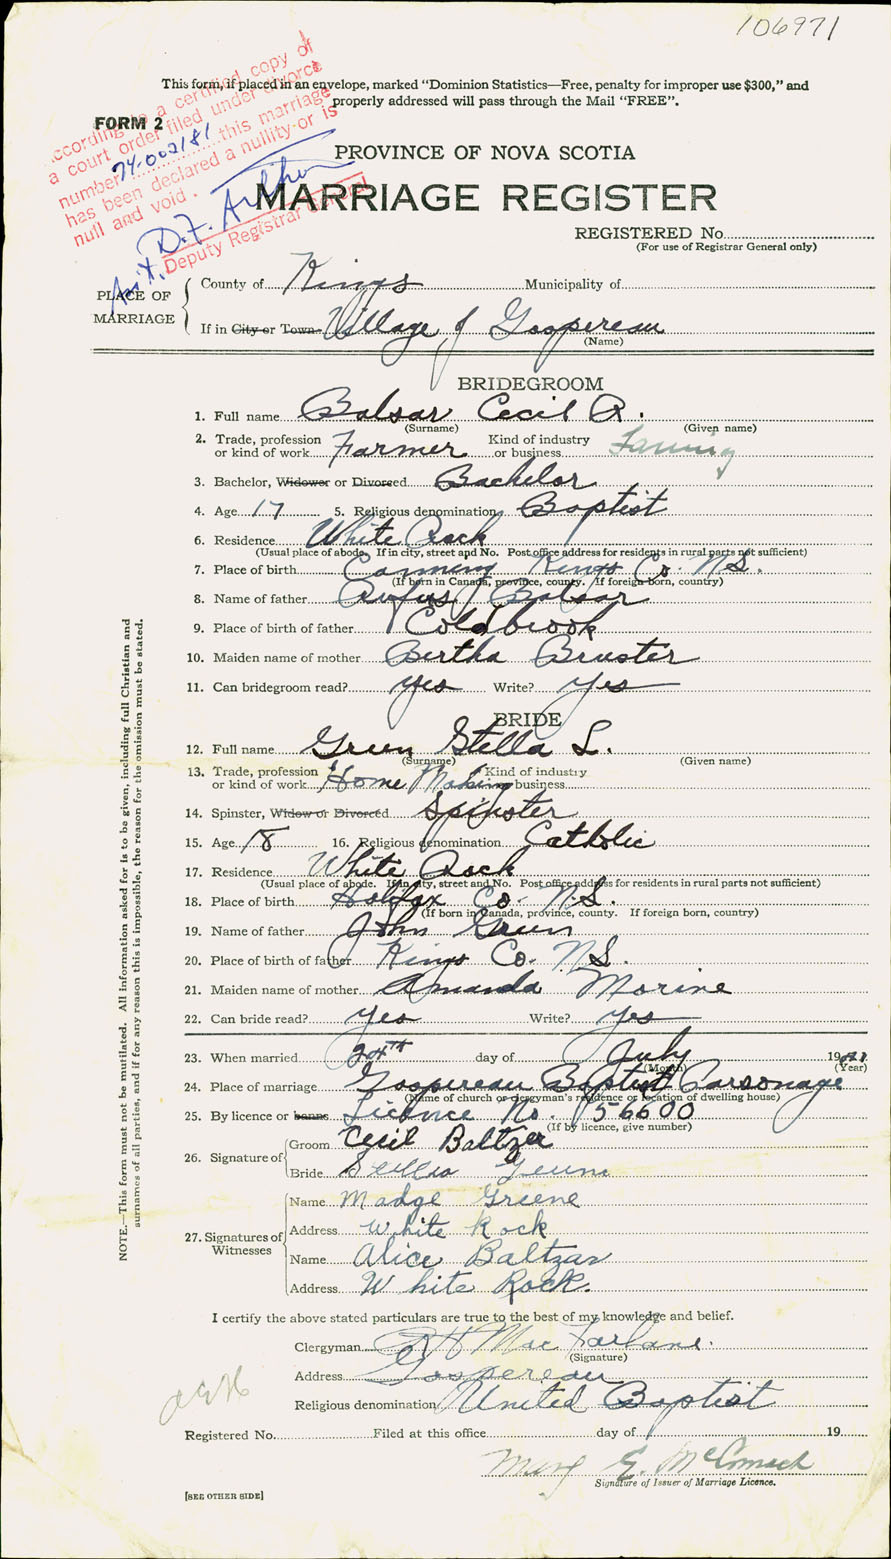 106971
This form, if placed in an envelope, marked "Dominion Statistics—Free, penalty for improper use $300," and
properly addressed will pass through the Mail "FREE".
FORM 2
According to a certified copy of
a court order filed under divorce
number 74-002181 this marriage
has been declared a nullity or is
null and void.
D.F.
Deputy Registrar General
PROVINCE OF NOVA SCOTIA
MARRIAGE REGISTER
REGISTERED No.
(For use of Registrar General only)
PLACE OF MARRIAGE
County of Kings Municipality of
If in City or Town Village of Gaspereau
(Name)
BRIDEGROOM
1. Full name Balsar Cecil R.
(Surname) (Given name)
2. Trade, profession or kind of work Farmer Kind of industry or business Farming
3. Bachelor, Widower or Divorced Bachelor
4. Age 17 5. Religious denomination Baptist
6. Residence White Rock
(Usual place of abode. If in city, street and No. Post office address for residents in rural parts not sufficient)
7. Place of birth Canning Kings Co. N.S.
(If born in Canada, province, county. If foreign born, country)
8. Name of father Rufus Balsar
9. Place of birth of father Coldbrook
10. Maiden name of mother Bertha Bruster
11. Can bridegroom read? yes Write? yes
BRIDE
12. Full name Green Stella L.
(Surname) (Given name)
13. Trade, profession or kind of work Home Making Kind of industry business
14. Spinster, Widow or Divorced Spinster
15. Age 18 16. Religious denomination Catholic
17. Residence White Rock
(Usual place of abode. If in city, street and No. Post office address for residents in rural parts not sufficient)
18. Place of birth Halifax Co. N.S.
(If born in Canada, province, county. If foreign born, country)
19. Name of father John Green
20. Place of birth of father Kings Co. N.S.
21. Maiden name of mother Amanda Morine
22. Can bride read? yes Write? yes
23. When married 24TH day of July 19
(Month) (Year)
24. Place of marriage Gaspereau Baptist Parsonage
(Name of church or clergyman's residence or location of dwelling house)
25. By licence or banns Licence No. 56600
(If by licence, give number)
26. Signature of
Groom Cecil Baltzer
Bride
27. Signatures of Witnesses
Name Madge Greene
Address White Rock
Name Alice Baltzar
Address White Rock.
I certify the above stated particulars are true to the best of my knowledge and belief.
Clergyman MacFarlane.
(Signature)
Address Gaspereau
Religious denomination United Baptist
Registered No. Filed at this office day of 19
Mary E. McCormack
Signature of Issuer of Marriage Licence.
[SEE OTHER SIDE]
NOTE.—This form must not be mutilated. All information asked for is to be given, including full Christian and
surnames of all parties, and if for any reason this is impossible, the reason for the omission must be stated.